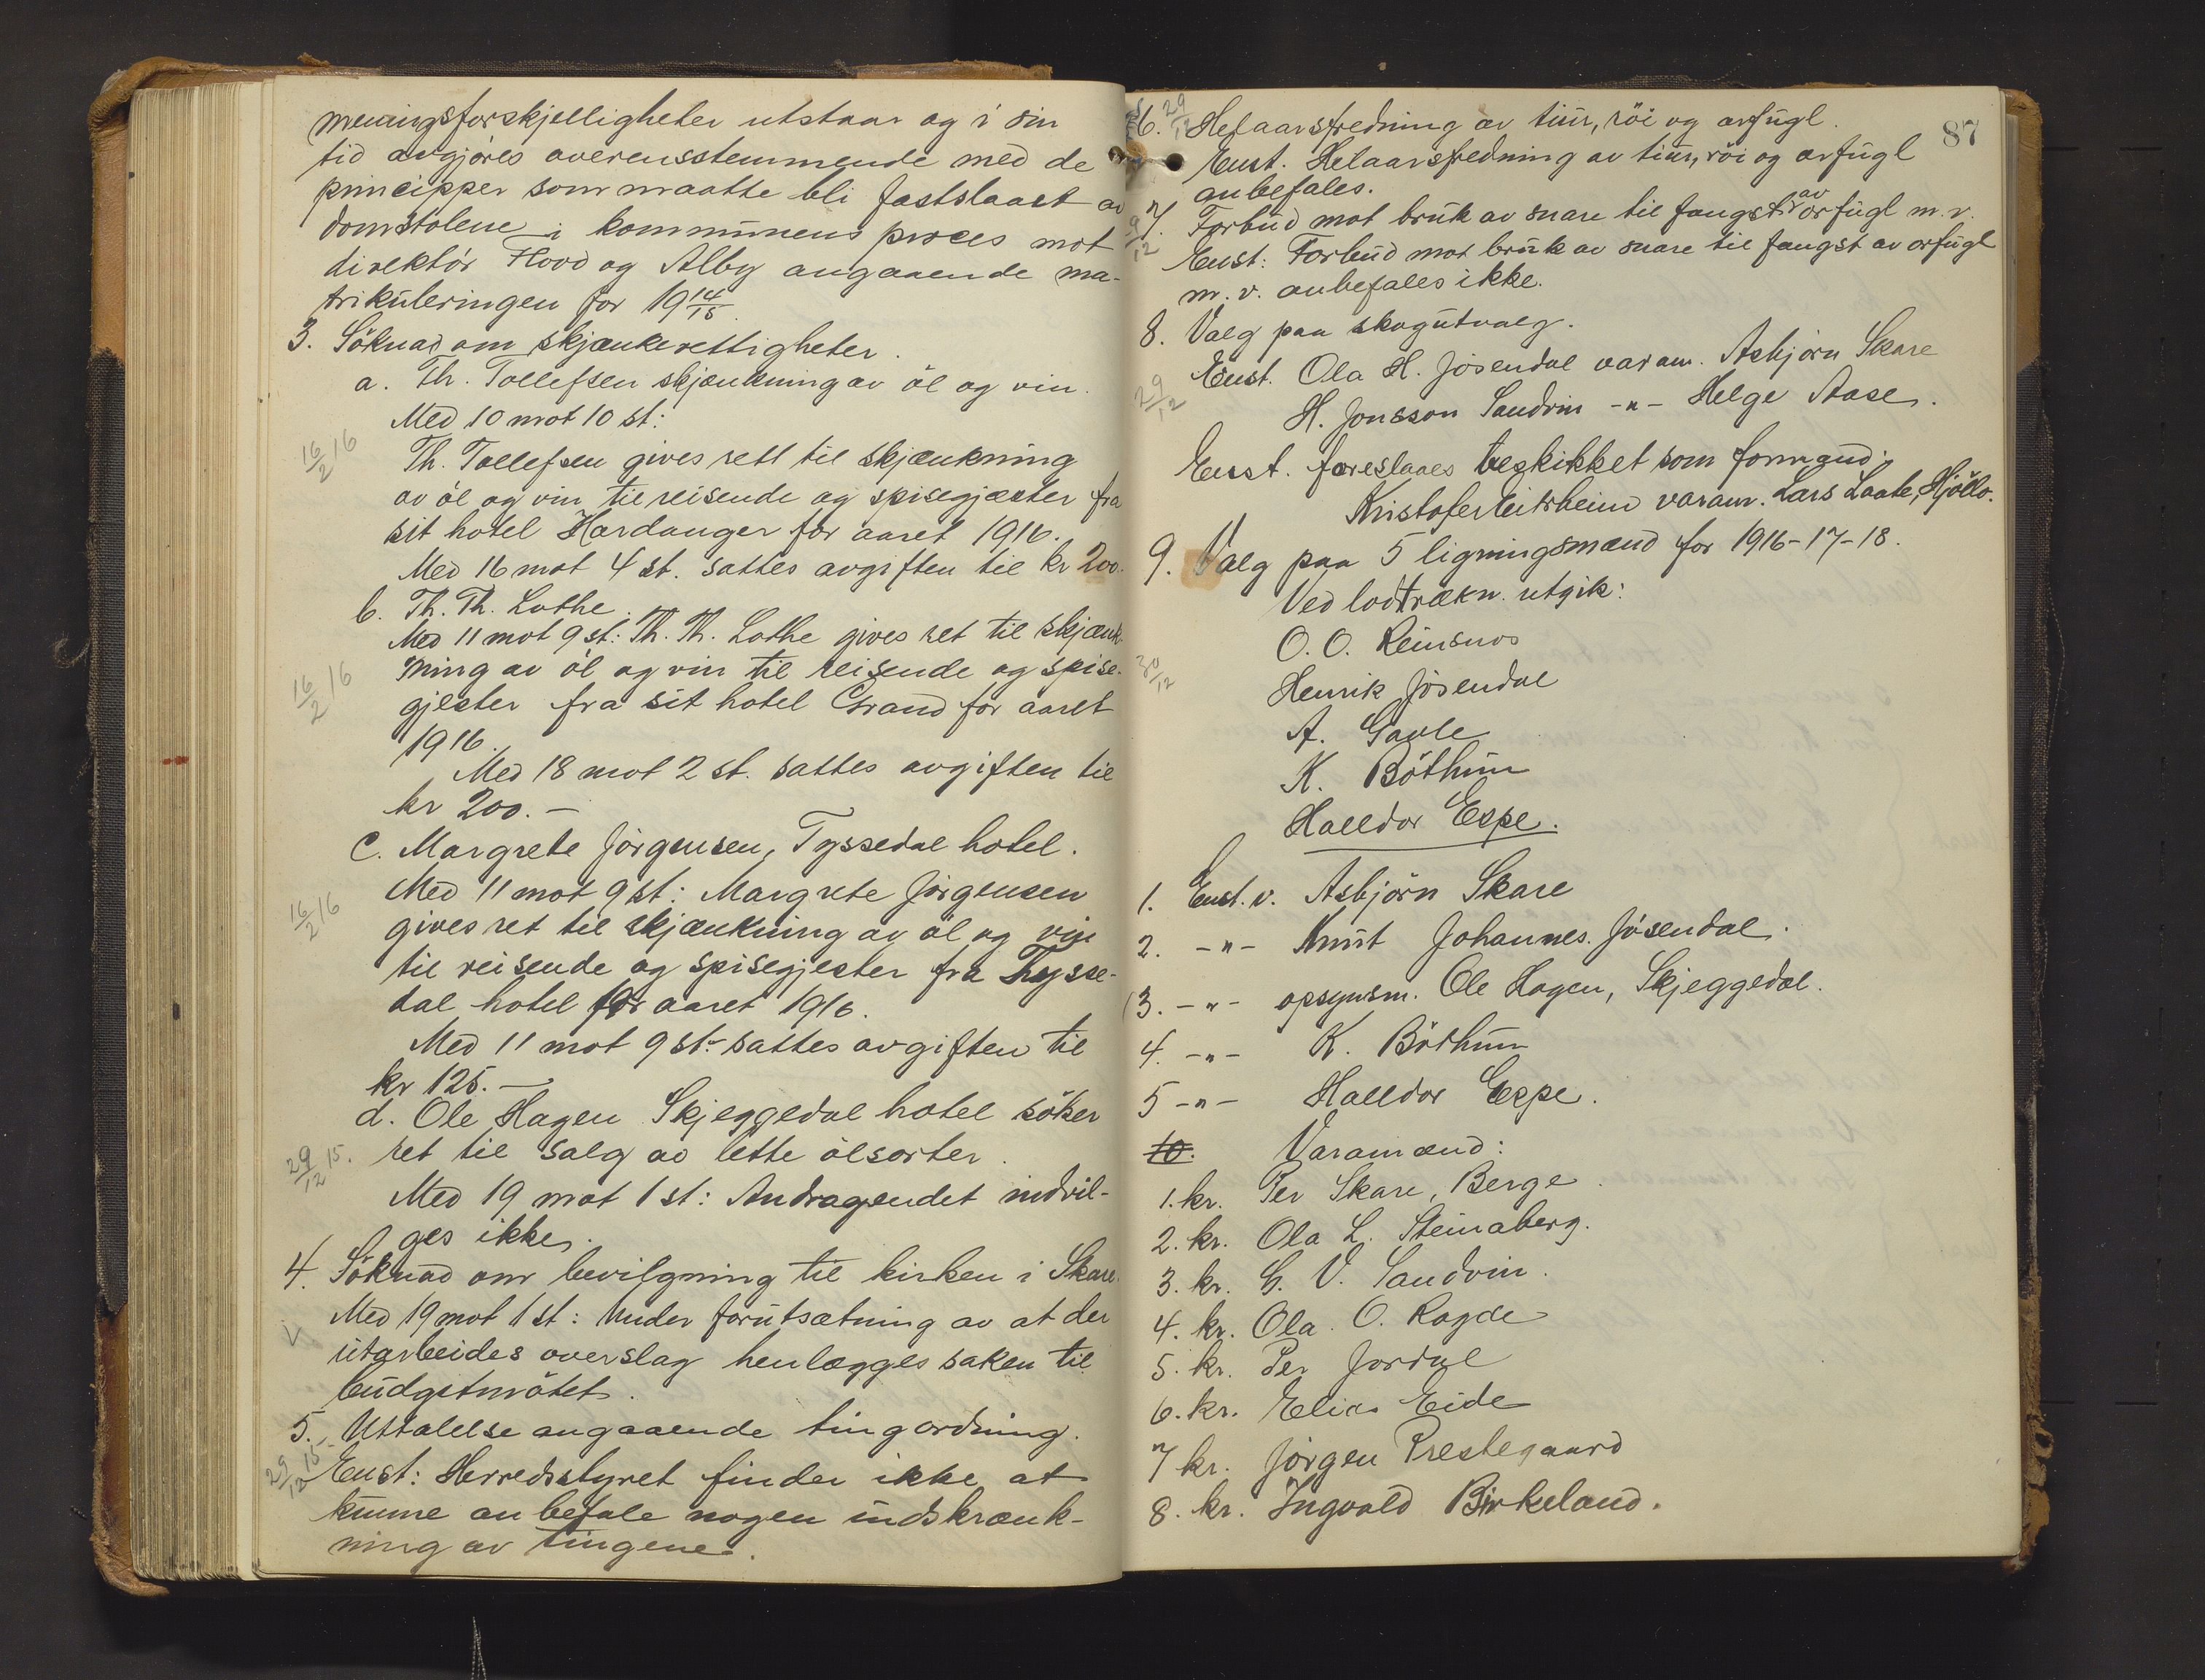 meningsforskjelligheter utstaar og i sin
tid avgjøres overensstemmende med de
principper som maatte bli fastslaaet av
domstolene i kommunens proces mot
direktør Flood og Alby angaaende ma-
trikuleringen for 19 14/15.
3. Söknad om skjænkerettigheter.
a. Th. Tollefsen skjænkning av öl og vin.
Med 10 mot 10 st:
16/2 16
Th. Tollefsen gives rett til skjænkning
av öl og vin til reisende og spisegjæster fra
sit hotel Hardanger for aaret 1916.
Med 16 mot 4 st. sattes avgiften til kr 200.
b. Th. Th. Lothe.
Med 11 mot 9 st: Th. Th. Lothe gives ret til skjænk-
ning av öl og vin til reisende og spise-
16/2 16
gjester fra sit hotel Grand for aaret
1916.
Med 18 mot 2 st. sattes avgiften til
kr 200.-
c. Margrete Jörgensen, Tyssedal hotel.
Med 11 mot 9 st: Margrete Jörgensen
16/2 16
gives ret til skjænkning av öl og vin
til reisende og spisegjester fra Thysse-
dal hotel for aaret 1916.
Med 11 mot 9 st. sattes avgiften til
kr 125.-
d. Ole Hagen Skjeggedal hotel söker
29/12 15.
ret til salg av lette ölsorter.
Med 19 mot 1 st: Andragendet indvil-
ges ikke.
4. Söknad om bevilgning til kirken i Skare.
Med 19 mot 1 st: Under forutsætning av at der
utarbeides overslag henlægges saken til
budgetmötet.
5. Uttalelse angaaende tingordning.
29/12 15
Enst: Herredsstyret finder ikke at
kunne anbefale nogen indskrænk-
ning av tingene.
87
6. 29/12 Helaarsfredning av tiur, röi og orfugl.
Enst. Helaarsfredning av tiur, röi og orfugl
anbefales.
7. Forbud mot bruk av snare til fangst av orfugl m.v.
29/12
Enst: Forbud mot bruk av snare til fangst av orfugl
m.v. anbefales ikke.
8. Valg paa skogutvalg.
29/12
Enst. Ola H. Jösendal varam. Asbjörn Skare
H. Jonsson Sandvin -"- Helge Aase.
Enst. foreslaaes beskikket som formand:
Kristofer Eitrheim varam. Lars Laate, Hjöllo.
9. Valg paa 5 ligningsmænd for 1916-17-18.
Ved lodtrækn. utgik:
O. O. Reinsnos
30/12
Henrik Jösendal
A. Gaule
K. Böthun
Halldor Espe.
1. Enst. v. Asbjörn Skare
2. -"- Knut Johannes. Jösendal.
3. -"- opsynsm. Ole Hagen, Skjeggedal.
4. -"- K. Böthun
5 -"- Halldor Espe.
10. Varamænd:
1. kr. Per Skare, Berge.
2. kr. Ola L. Steinaberg.
3. kr. G. V. Sandvin.
4. kr. Ola O. Ragde
5. kr. Per Jordal
6. kr. Elias Eide
7 kr. Jörgen Prestegaard
8. kr. Ingvald Birkeland.